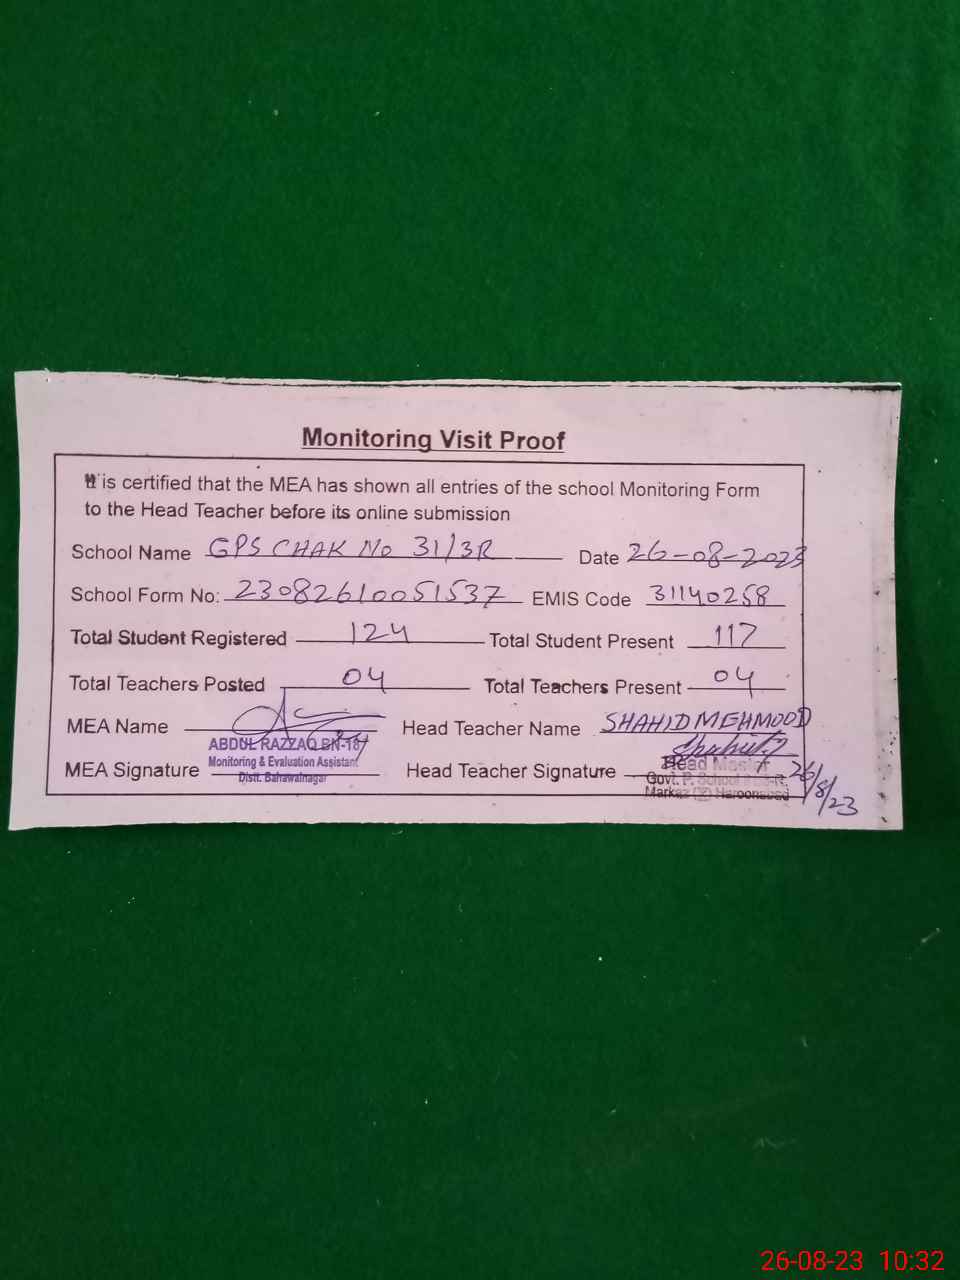 Monitoring Visit Proof
It is certified that the MEA has shown all entries of the school Monitoring Form
to the Head Teacher before its online submission
School Name GPS CHAK No 31/3R Date 26-08-2023
School Form No: 23082610051537 EMIS Code 31140258
Total Student Registered 124 Total Student Present 117
Total Teachers Posted 04 Total Teachers Present 04
MEA Name Head Teacher Name SHAHID MEHMOOD
ABDUL RAZZAQ BN-187
Monitoring & Evaluation Assistant
Distt. Bahawalnagar
MEA Signature Head Teacher Signature
Head Master
Govt. P. School
Markaz Haroonabad
26/8/23
26-08-23 10:32